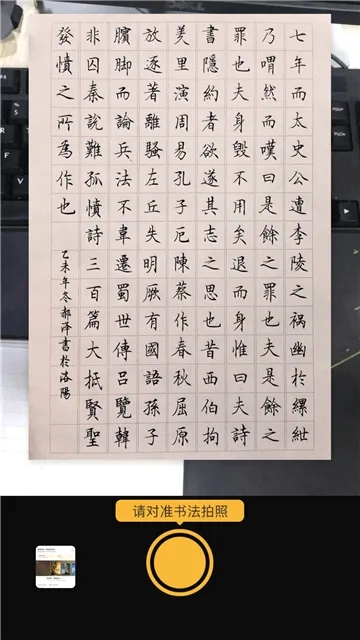 七年而太史公遭李陵之祸幽於縲紲
乃喟然而嘆曰是餘之罪也夫是餘之
罪也夫身毀不用矣退而身惟曰夫詩
書隱約者欲遂其志之思也昔西伯拘
美里演周易孔子厄陳蔡作春秋屈原
放逐著離騷左丘失明厥有國語孫子
臏脚而論兵法不韋遷蜀世傳呂覽韓
非囚秦說難孤憤詩三百篇大抵賢聖
發憤之所為作也
乙未年冬郝澤書於洛陽
请对准书法拍照